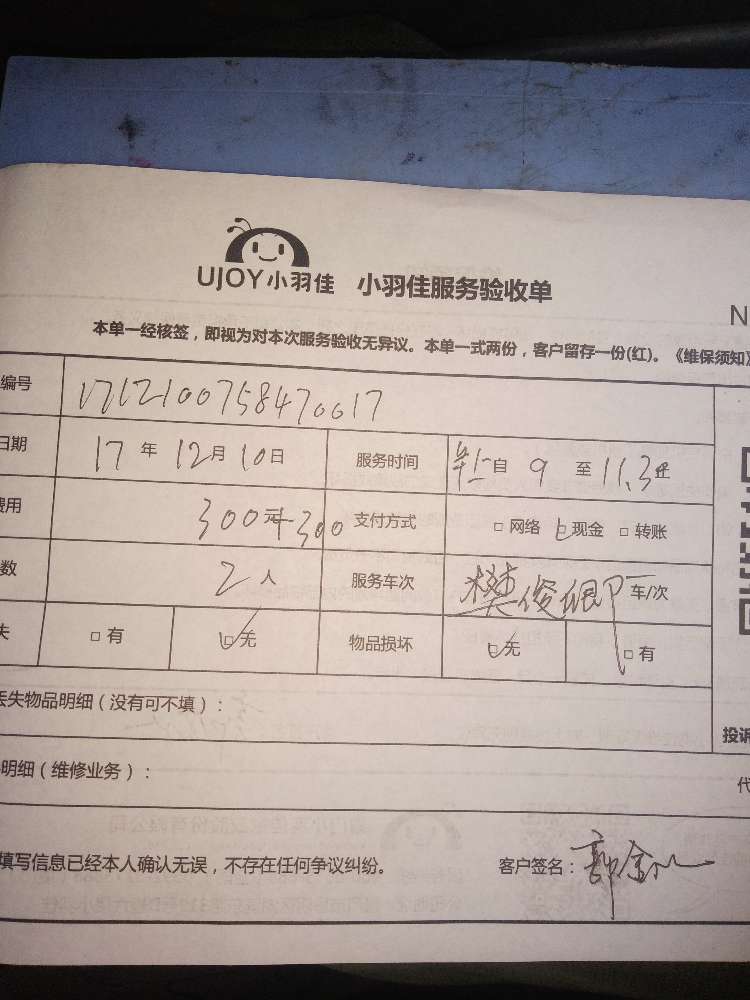 UJOY小羽佳 小羽佳服务验收单
N
本单一经核签，即视为对本次服务验收无异议。本单一式两份，客户留存一份(红)。《维保须知》
编号 171210075847001​7
日期 17年12月10日 服务时间 自9至11.3 止
费用 300 300 支付方式 □网络 □现金 □转账
数 2人 服务车次 樊俊 车/次
失 □有 □无 物品损坏 □无 □有
丢失物品明细（没有可不填）：
投诉
明细（维修业务）：
代
填写信息已经本人确认无误，不存在任何争议纠纷。 客户签名：郭金